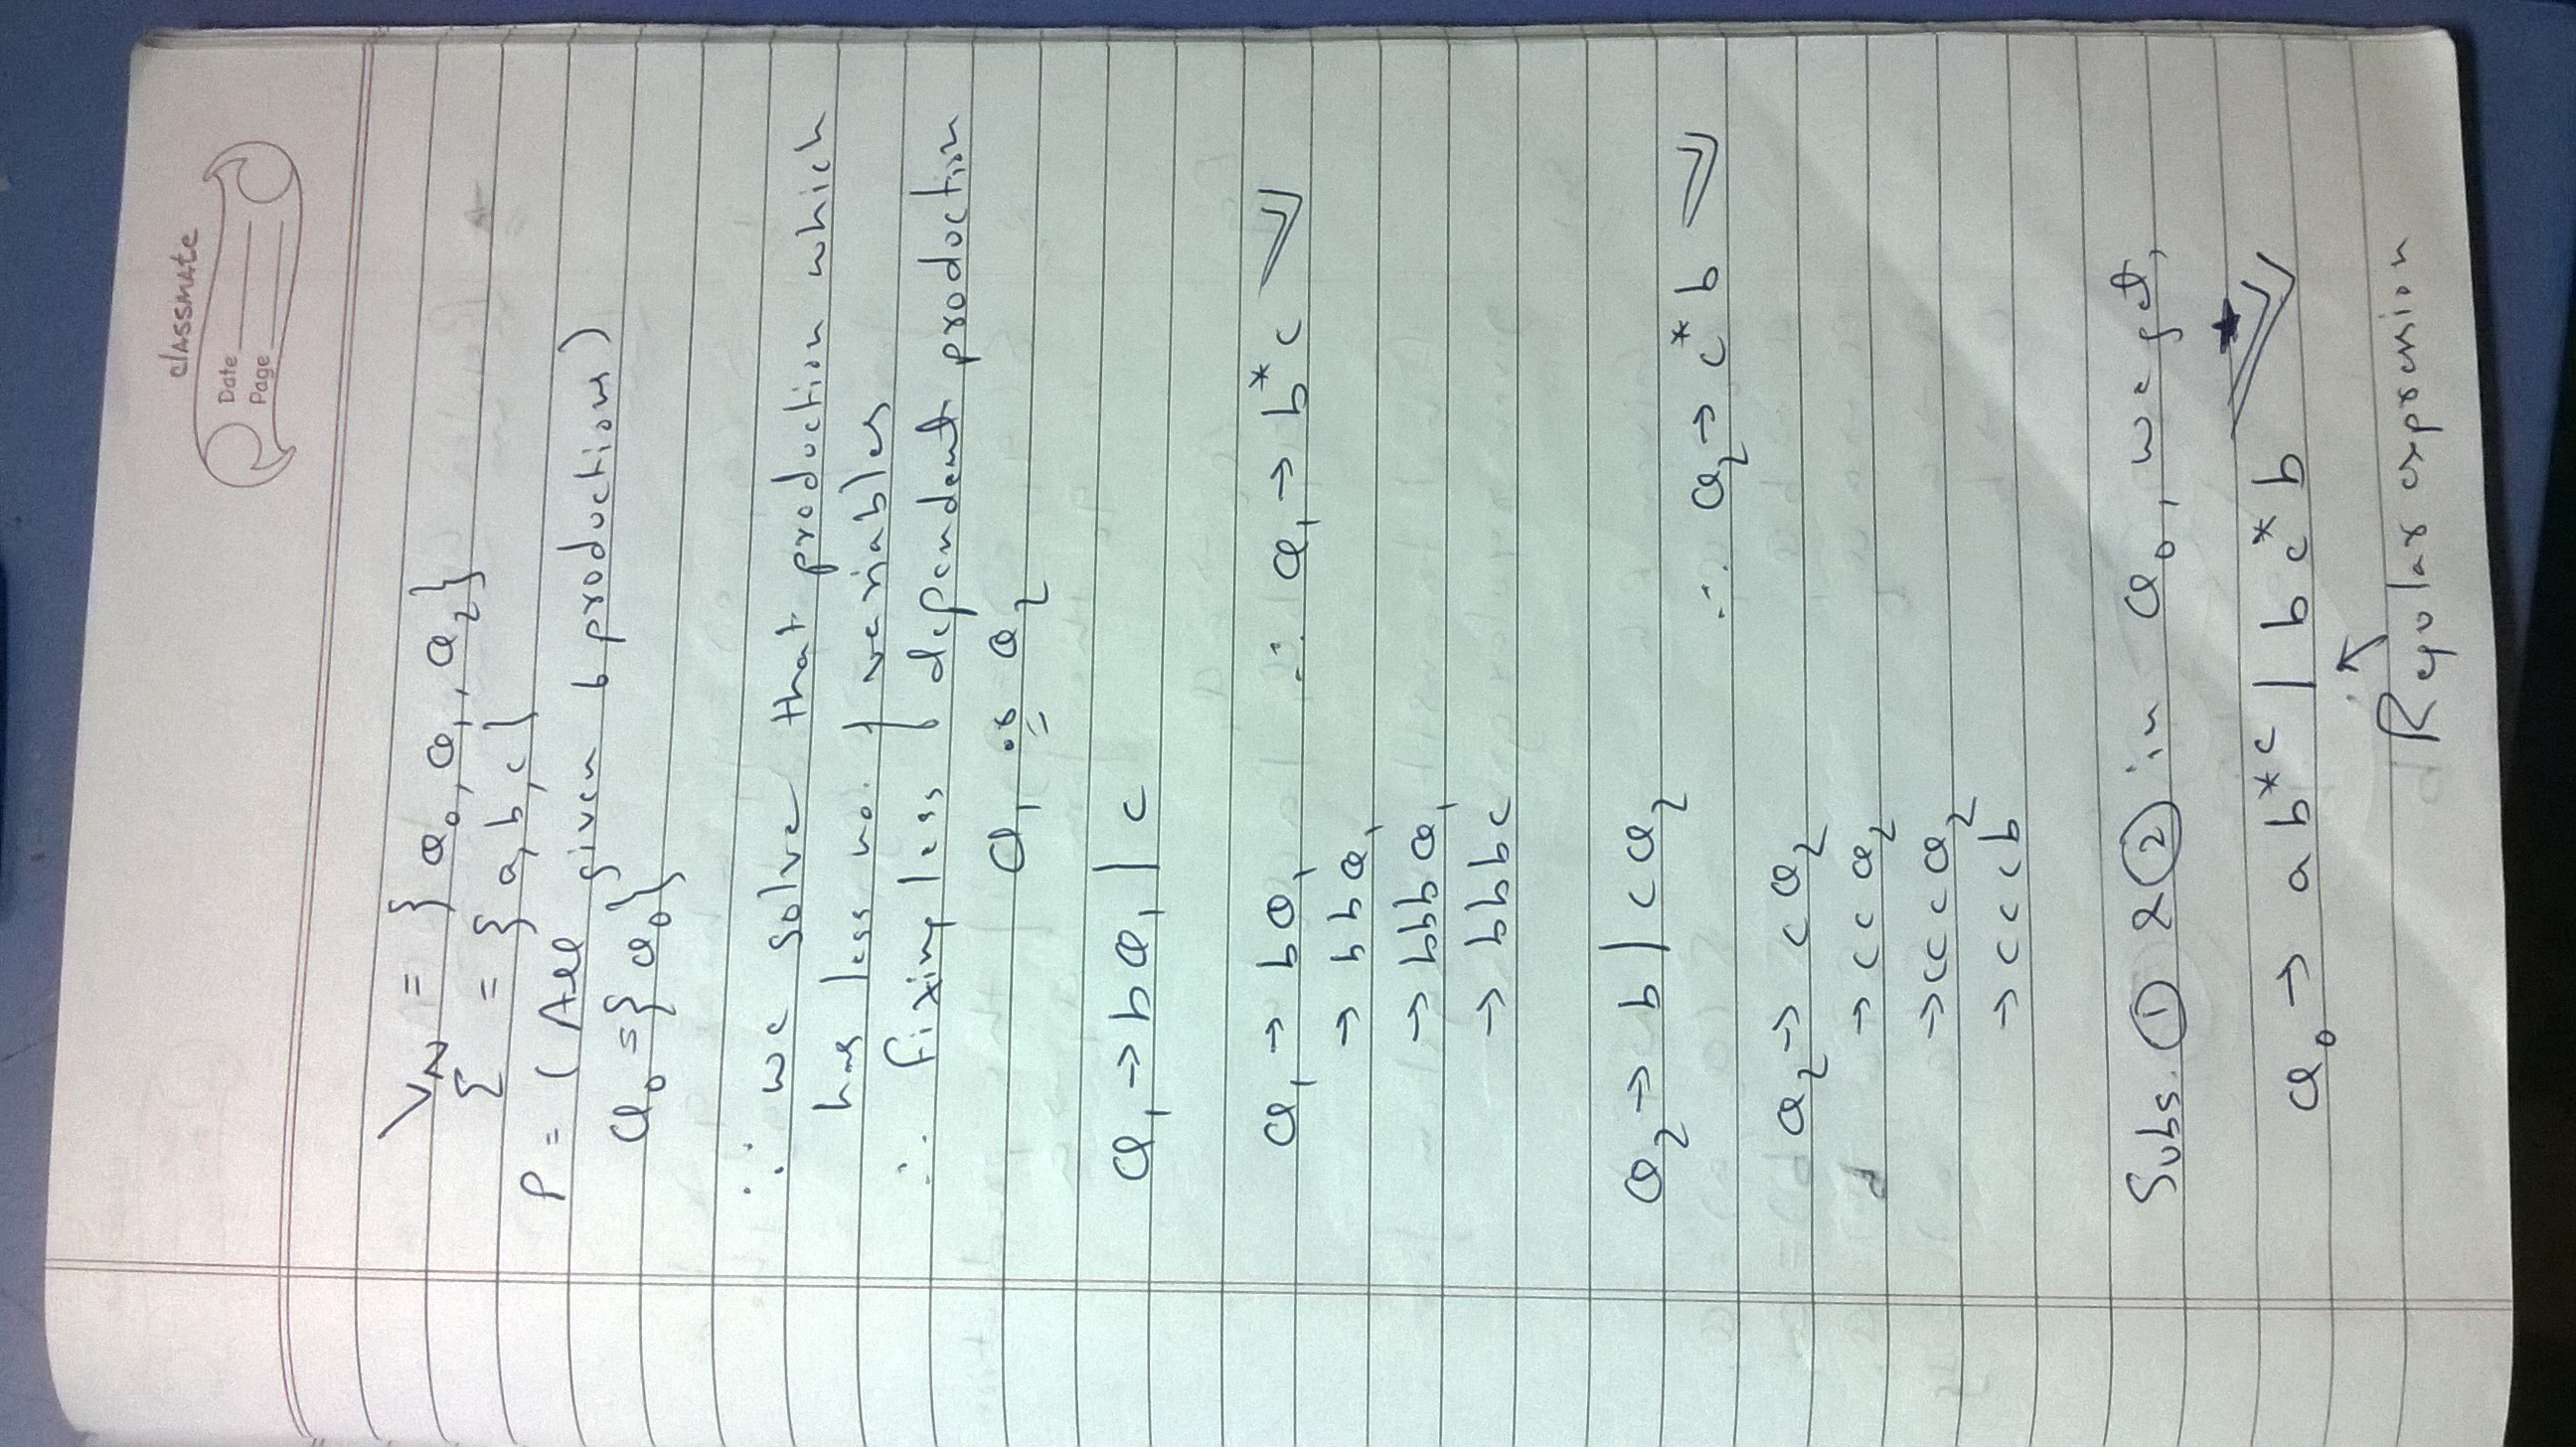 classmate
Date
Page
V_N = { Q₀, Q₁, Q₂}
Σ = { a, b, c }
P = ( All given 6 productions )
Q₀ = { Q₀ }
∵ we solve that production which
has less no. of variables
∴ fixing less dependent production
Q₁ or Q₂
Q₁ → b Q₁ | c
Q₁ → b Q₁ ∴ Q₁ → b*c
→ b b Q₁
→ b b b Q₁
→ b b b c
Q₂ → b | c Q₂
∴ Q₂ → c* b
Q₂ → c Q₂
→ c c Q₂
→ c c c Q₂
→ c c c b
Subs. ① & ② in Q₀, we get,
Q₀ → a b* c | b c* b
Regular expression